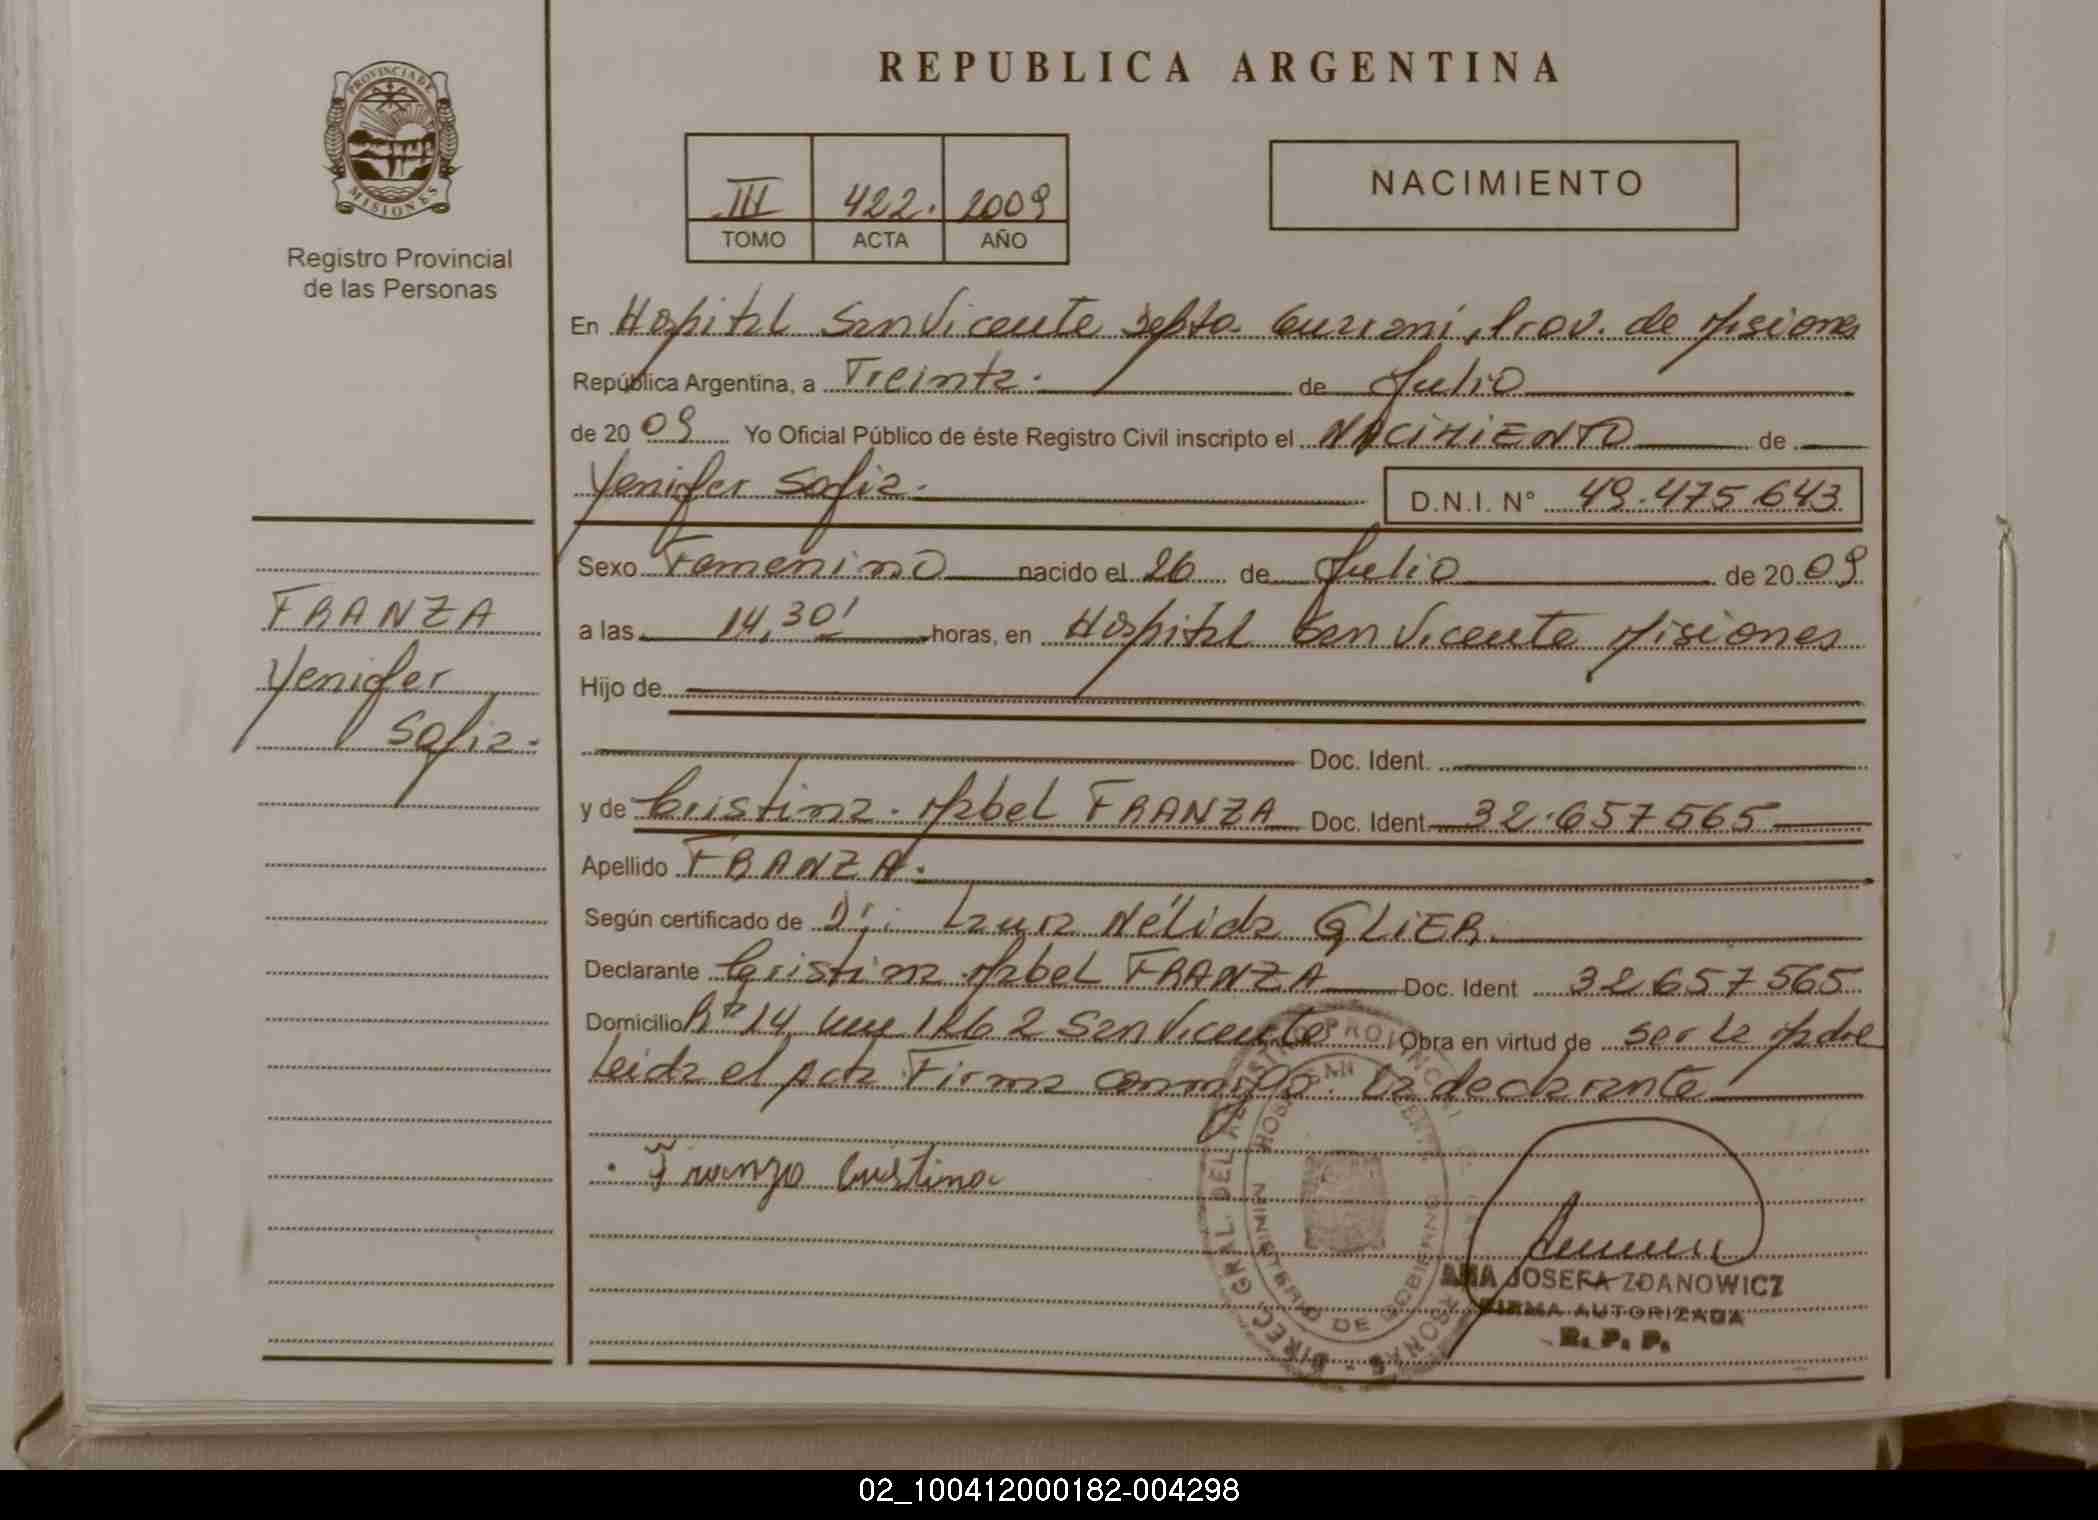 REPUBLICA ARGENTINA
PROVINCIA DE
MISIONES
Registro Provincial
de las Personas
III 422. 2009
TOMO ACTA AÑO
NACIMIENTO
En Hospital San Vicente Depto Guaraní, Prov. de Misiones
República Argentina, a Treinta. de Julio
de 2009 Yo Oficial Público de éste Registro Civil inscripto el NACIMIENTO de
Yenifer Sofia. D.N.I. N° 49.475.643
Sexo Femenino nacido el 26 de Julio de 2009
FRANZA
a las 14,30' horas, en Hospital San Vicente Misiones
Yenifer
Hijo de
Sofia.
Doc. Ident.
y de Cristina. Mabel FRANZA Doc. Ident 32.657565
Apellido FRANZA.
Según certificado de Laura Nélida GLIER.
Declarante Cristina Mabel FRANZA Doc. Ident 32657565
Domicilio 14 1262 San Vicente Obra en virtud de ser la Madre
Leida el acta Firma conmigo. La declarante
Franza Cristina
DIREC. GRAL. DEL REGISTRO PROVINCIAL DE LAS PERSONAS
HOSP. SAN VICENTE
MINISTERIO DE GOBIERNO
ANA JOSEFA ZDANOWICZ
FIRMA AUTORIZADA
R. P. P.
02_100412000182-004298